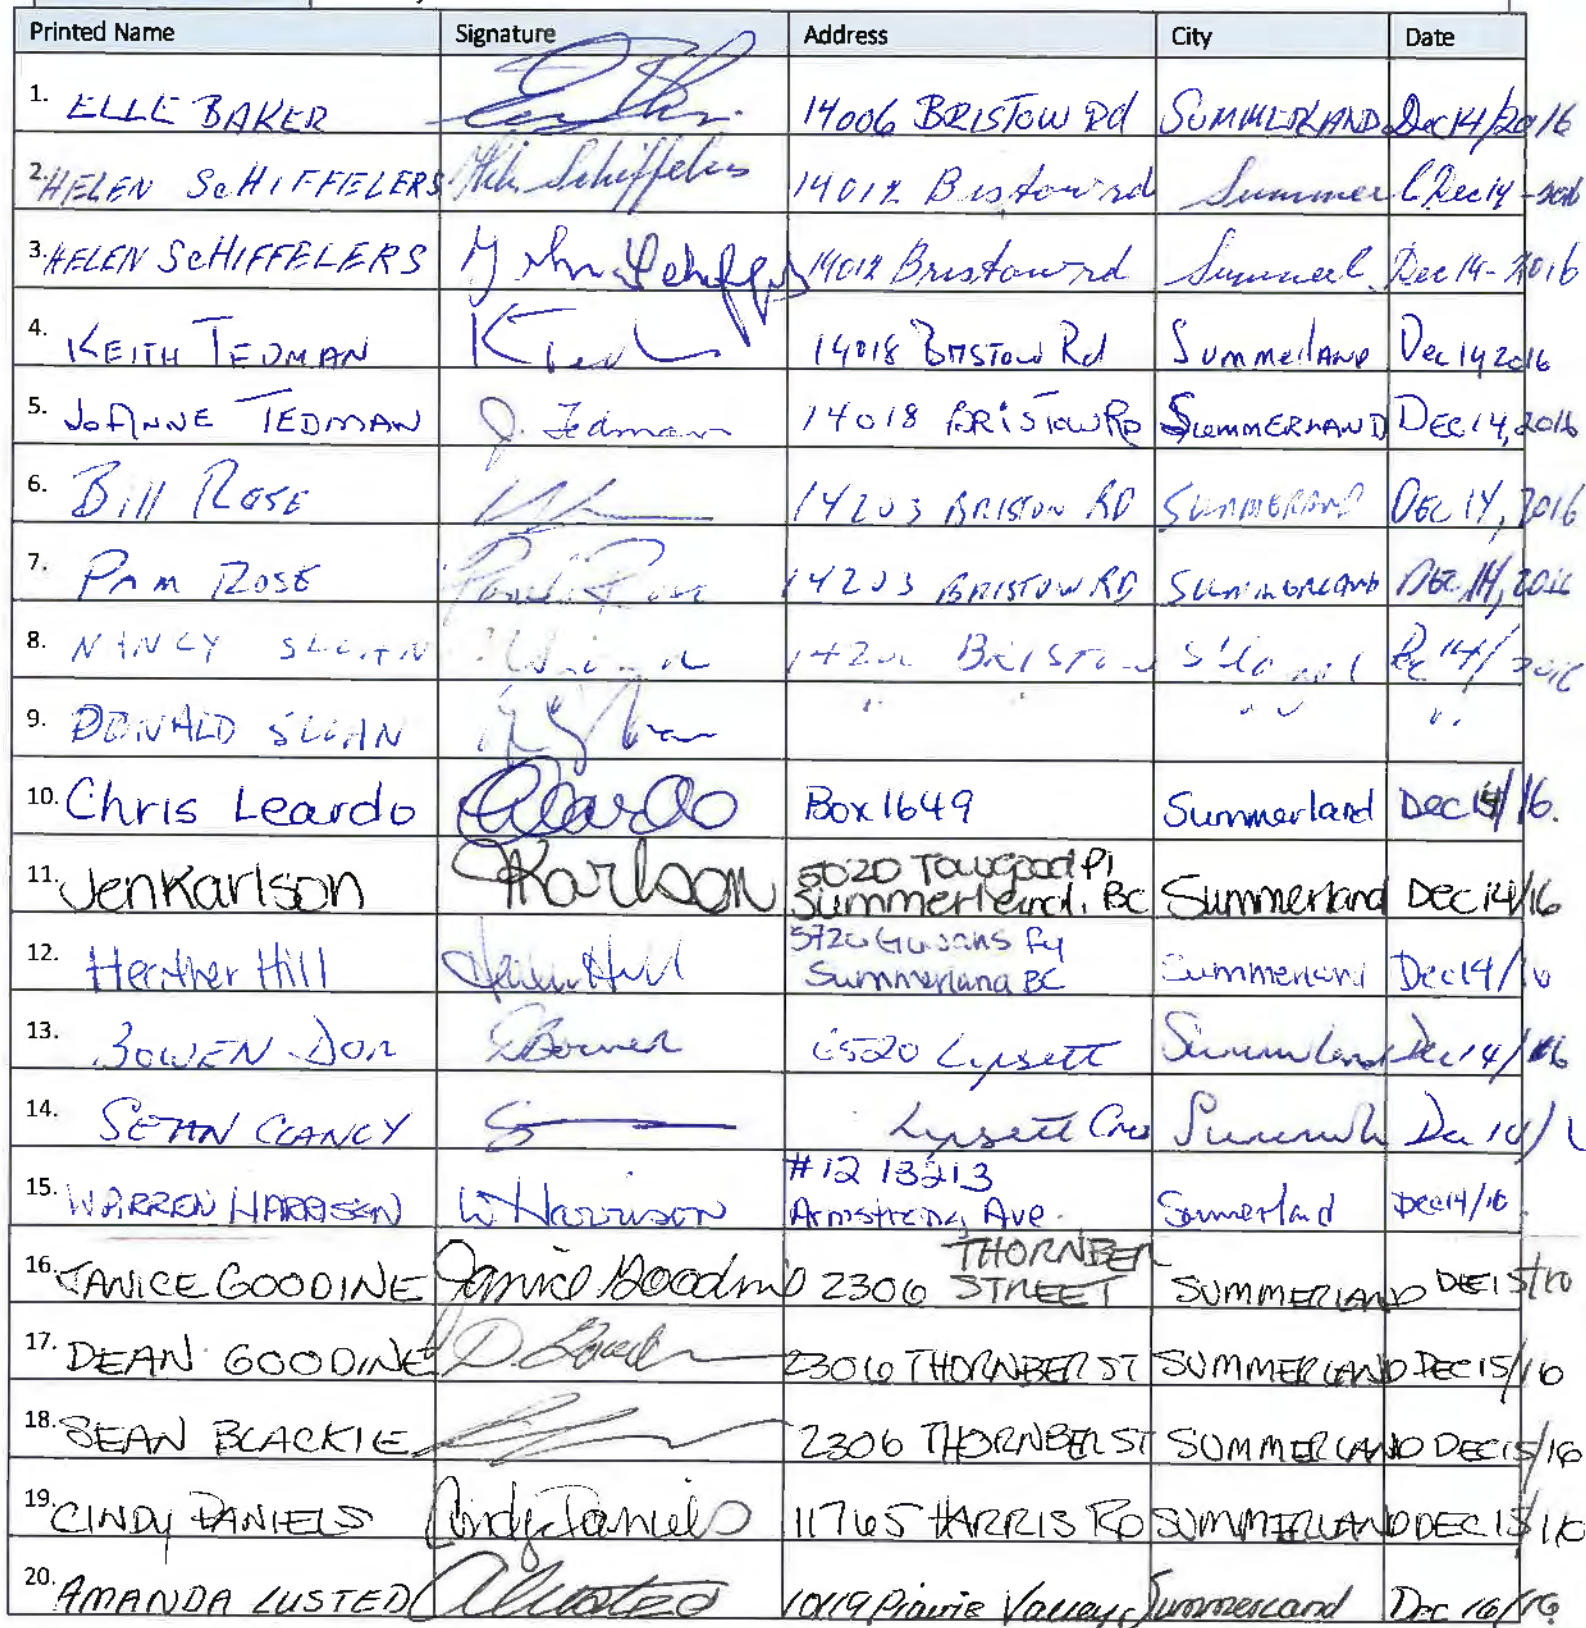 Printed Name Signature Address City Date
1. ELLE BAKER 14006 BRISTOW Rd SUMMERLAND Dec 14/2016
2. HELEN ScHIFFELERS Schiffelers 14012 Bristow rd Summerl Dec 14 - 2016
3. HELEN ScHIFFELERS John Schiffelers 14012 Bristow rd Summerl. Dec 14 - 2016
4. KEITH TEDMAN K Ted 14018 BRISTOW Rd SummerlAND Dec 14 2016
5. JoANNE TEDMAN J. Tedman 14018 BRISTOW RD SUMMERLAND DEC 14, 2016
6. Bill ROSE 14203 BRISTOW RD SUMMERLAND DEC 14, 2016
7. PAM ROSE Pamela Rose 14203 BRISTOW RD SUMMERLAND DEC 14, 2016
8. NANCY SLOAN BRISTOW S'land Dec 14/2016
9. DONALD SLOAN " " " " " "
10. Chris Leardo CLeardo Box 1649 Summerland Dec 14/16.
11. Jen Karlson JKarlson 5020 Towgood Pl
Summerland, BC Summerland Dec 14/16
12. Heather Hill Heather Hill 5720
Summerland BC Summerland Dec 14/16
13. BOWEN DON DBowen 6520 Lipsett Summerland Dec 14/16
14. SEAN CLANCY Lipsett Cres Dec 14/
15. WARREN HARRISON W Harrison #12 13213
Armstrong Ave. Summerland Dec 14/16.
16. JANICE GOODINE Janice Goodine 2306 THORNBER
STREET SUMMERLAND DEC 15/16
17. DEAN GOODINE D. Goodine 2306 THORNBER ST SUMMERLAND DEC 15/16
18. SEAN BLACKIE 2306 THORNBER ST SUMMERLAND DEC 15/16
19. CINDY DANIELS Cindy Daniels 11765 HARRIS RD SUMMERLAND DEC 15/16
20. AMANDA LUSTED ALusted 10119 Prairie Valley Summerland Dec 16/16